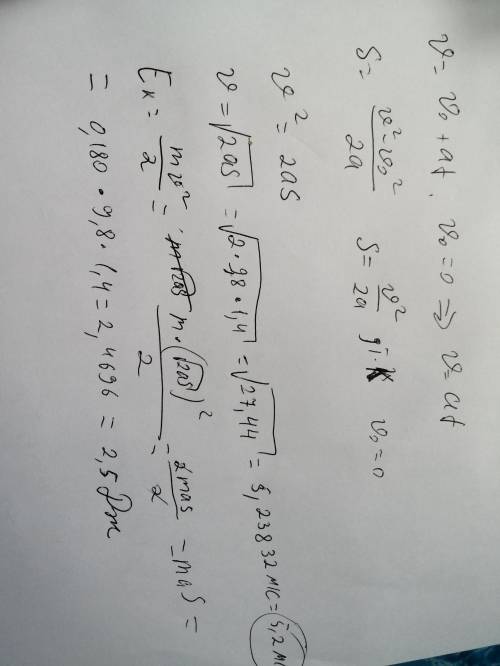 v = v₀ + at. v₀ = 0 ⇒ v = at
S = (v² - v₀²)/2a S = v²/2a v₀ = 0
v² = 2aS
v = √2aS = √2·9,8·1,4 = √27,44 = 5,23832 м/с = 5,2 м/с
Eк = mv²/2 = m·(√2aS)²/2 = 2maS/2 = maS =
= 0,180 · 9,8 · 1,4 = 2,4696 = 2,5 Дж